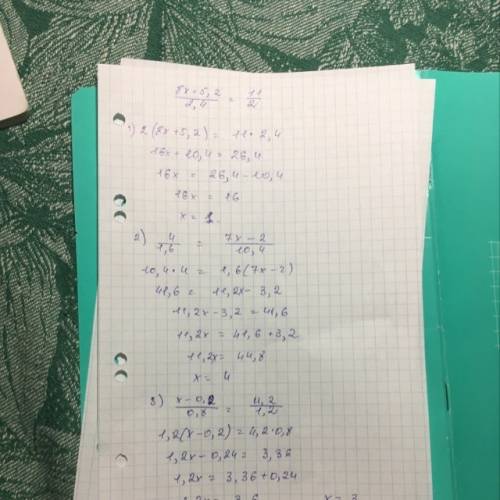 8x+5,2 / 2,4 = 11 / 2
1) 2(8x+5,2) = 11·2,4
16x+10,4 = 26,4
16x = 26,4-10,4
16x = 16
x = 1
2) 4 / 1,6 = 7x-2 / 10,4
10,4·4 = 1,6(7x-2)
41,6 = 11,2x-3,2
11,2x-3,2 = 41,6
11,2x = 41,6+3,2
11,2x = 44,8
x = 4
3) x-0,2 / 0,8 = 4,2 / 1,2
1,2(x-0,2) = 4,2·0,8
1,2x-0,24 = 3,36
1,2x = 3,36+0,24
1,2x = 3,6 x = 3